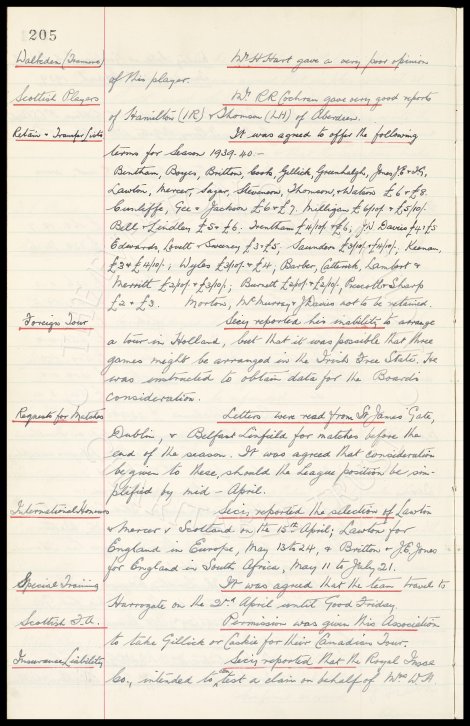 205
Walkden (Tranmere) Mr. H. Hart gave a very poor opinion
of this player.
Scottish Players Mr. R.R. Cochran gave very good reports
of Hamilton (IR) & Thomson (LH) of Aberdeen.
Retain & Transfer Lists It was agreed to offer the following
terms for Season 1939-40:-
Bentham, Boyes, Britton, Cook, Gillick, Greenhalgh, Jones J.E & T.G,
Lawton, Mercer, Sagar, Stevenson, Thomson & Watson £6 & £8.
Cunliffe, Gee & Jackson £6 & £7. Milligan £6/10/- & £5/10/-
Bell & Lindley £5 & £6. Trentham £4/10/- & £6; J.W. Davies £4 & £5
Edwards, Lovett & Sweeney £3 & £5, Saunders £3/10/- & £4/10/-, Keenan,
£3 & £4/10/-; Wyles £3/10/- & £4, Barber, Catterick, Lambert &
Merritt £2/10/- & £3/10/-; Burnett £2/10/- & £2/10/- Prescott & Sharp
£2 & £3. Morton, McMurray & J. Davies not to be retained.
Foreign Tour Secy reported his inability to arrange
a tour in Holland, but that it was possible that three
games might be arranged in the Irish Free State. He
was instructed to obtain data for the Board's
consideration.
Requests for Matches Letters were read from St. James' Gate,
Dublin, & Belfast Linfield for matches before the
end of the season. It was agreed that consideration
be given to these, should the League position be sim-
plified by mid-April.
International Honours Secy. reported the selection of Lawton
& Mercer v Scotland on the 15th April; Lawton for
England in Europe, May 13 to 24, & Britton & J.E. Jones
for England in South Africa, May 11 to July 21.
Special Training It was agreed that the team travel to
Harrogate on the 2nd April until Good Friday.
Scottish F.A. Permission was given this Association
to take Gillick or Caskie for their Canadian Tour.
Insurance Liability Secy reported that the Royal Insce
Co., intended to test a claim on behalf of Mrs W.H.